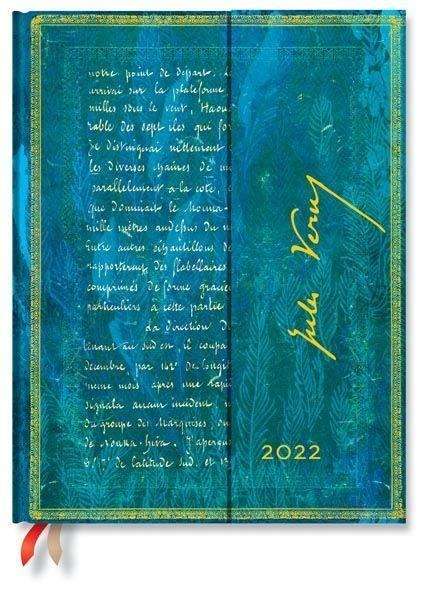 notre point de départ. L
arrivai sur la plateforme
milles sous le vent, Haou
rable des sept îles qui for
Je distinguai nettement
les diverses chaînes de m
parallèlement à la côte,
que dominait le Mouna-
mille mètres audessus du n
Entre autres échantillons d
rapportèrent des flabellaires
comprimés de forme gracieu
particuliers à cette partie
La direction d
tenant au sud est, il coupa
décembre, par 142° de longit
même mois après une rapi
signala aucun incident,
du groupe des Marquises, 
de Nouka-hiva. J'aperçu
de latitude sud, et 13
Jules Verne
2022